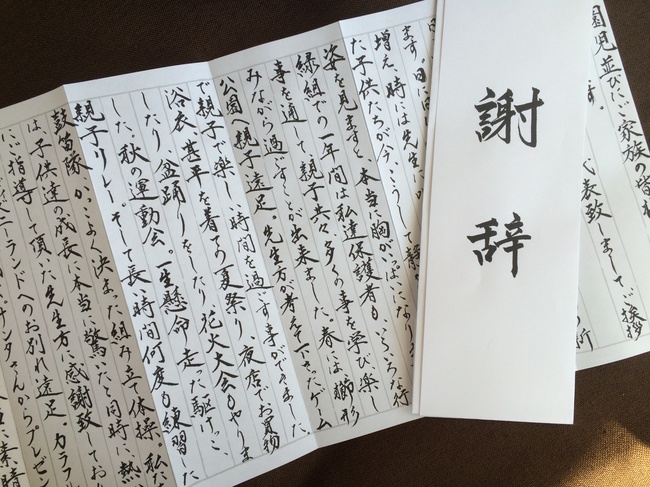 園児並びにご家族の皆
代表致しましてご挨拶
所
謝辞
ます。日に日に
増え、時には先生に
た子供たちが今、こうして静
姿を見ますと、本当に胸がいっぱいになりま
緑組での一年間は私達保護者もいろいろな行
事を通して、親子共々多くの事を学び、楽し
みながら過ごすことが出来ました。春には櫛形
公園へ親子遠足。先生方が考えて下さったゲーム
で親子で楽しい時間を過ごす事ができました。
浴衣、甚平を着ての夏祭り、夜店でお買物
したり、盆踊りをしたり、花火大会もやりま
した。秋の運動会。一生懸命走った駆けっこ、
親子リレー。そして長い時間何度も練習した
鼓笛隊、かっこよく決まった組み立て体操、私た
は子供達の成長に本当に驚いたと同時に、熱
にご指導して頂いた先生方に感謝致してお
ズニーランドへのお別れ遠足。カラフ
サンタさんからプレゼン
に素晴